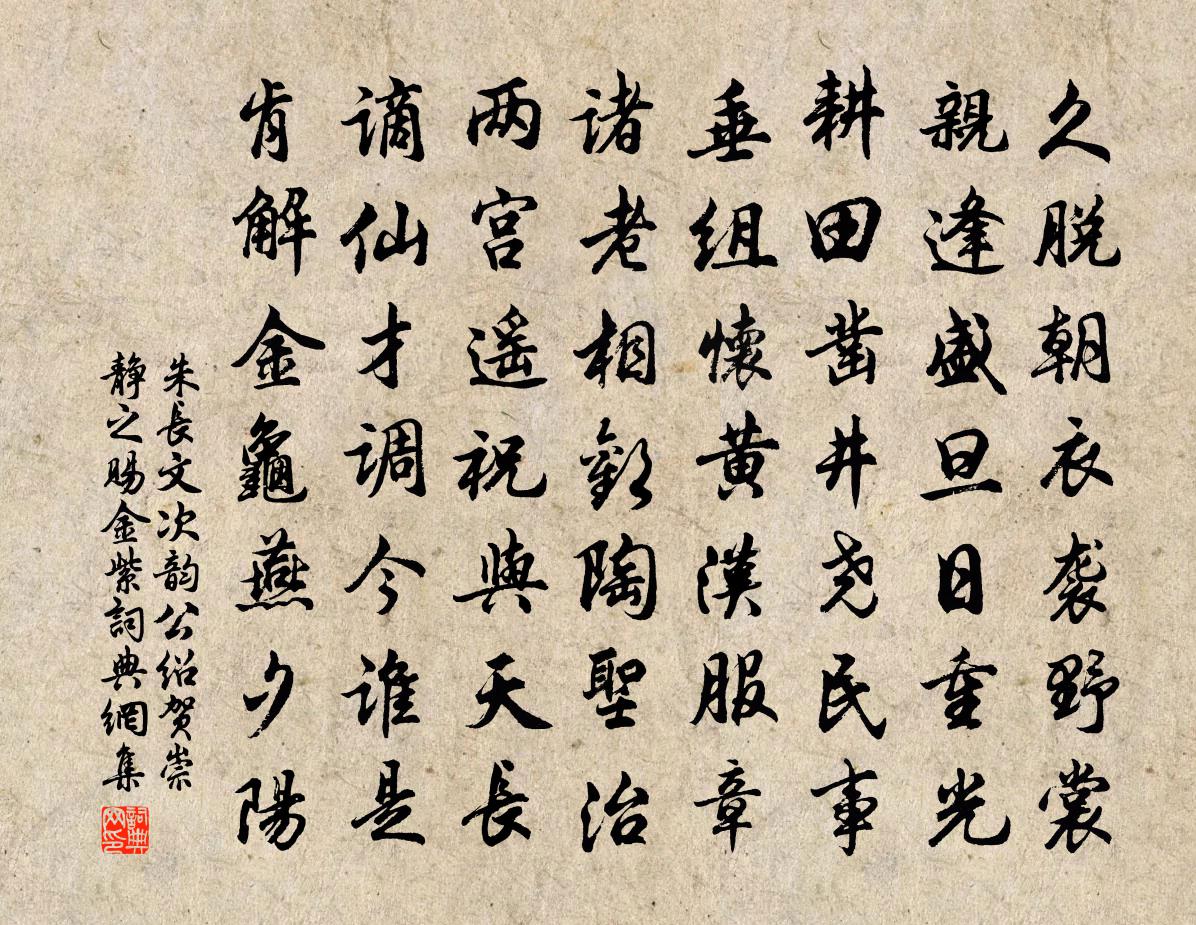 久脱朝衣袭野裳
親逢盛旦日重光
耕田凿井尧民事
垂组懷黄漢服章
诸老相歡陶聖治
两宫遥祝與天長
谪仙才调今谁是
肯解金龜燕夕陽
朱長文次韵公绍贺崇
静之赐金紫詞典網集
詞典
网印